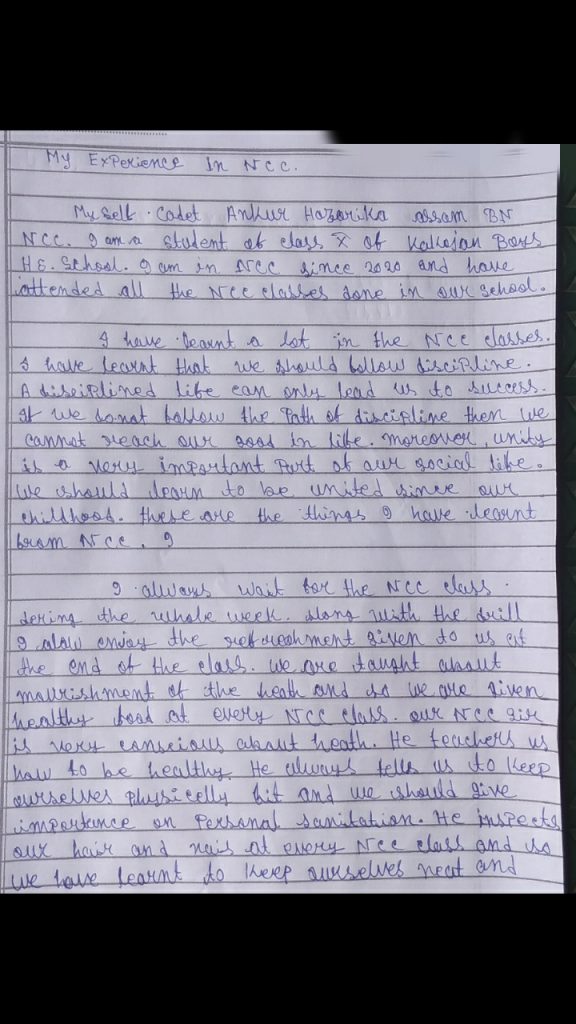 My Experience In NCC.
My Self. Cadet Ankur Hazarika assam BN
NCC. I am a student of class X of Kakojan Boys
HS. School. I am in NCC since 2020 and have
attended all the NCC classes done in our school.
I have learnt a lot in the NCC classes.
I have learnt that we should follow discipline.
A disciplined life can only lead us to success.
If we donot follow the Path of discipline then we
cannot reach our good in life. moreover, unity
is a very important Part of our social life.
We should learn to be united since our
childhood. these are the things I have learnt
from NCC. I
I always wait for the NCC class.
dering the whole week. along with the drill
I alow enjoy the refreshment given to us at
the end of the class. we are taught about
mourishment of the heath and so we are given
healthy food at every NCC class. our NCC sir
is very conscious about heath. He teachers us
how to be healthy. He always tells us to keep
ourselves physiclly fit and we should give
importance on Personal sanitation. He inspects
our hair and nais at every NCC class and so
we have learnt to keep ourselves neat and